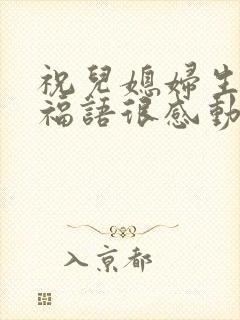 祝兒媳婦生
福語很感動
入京都